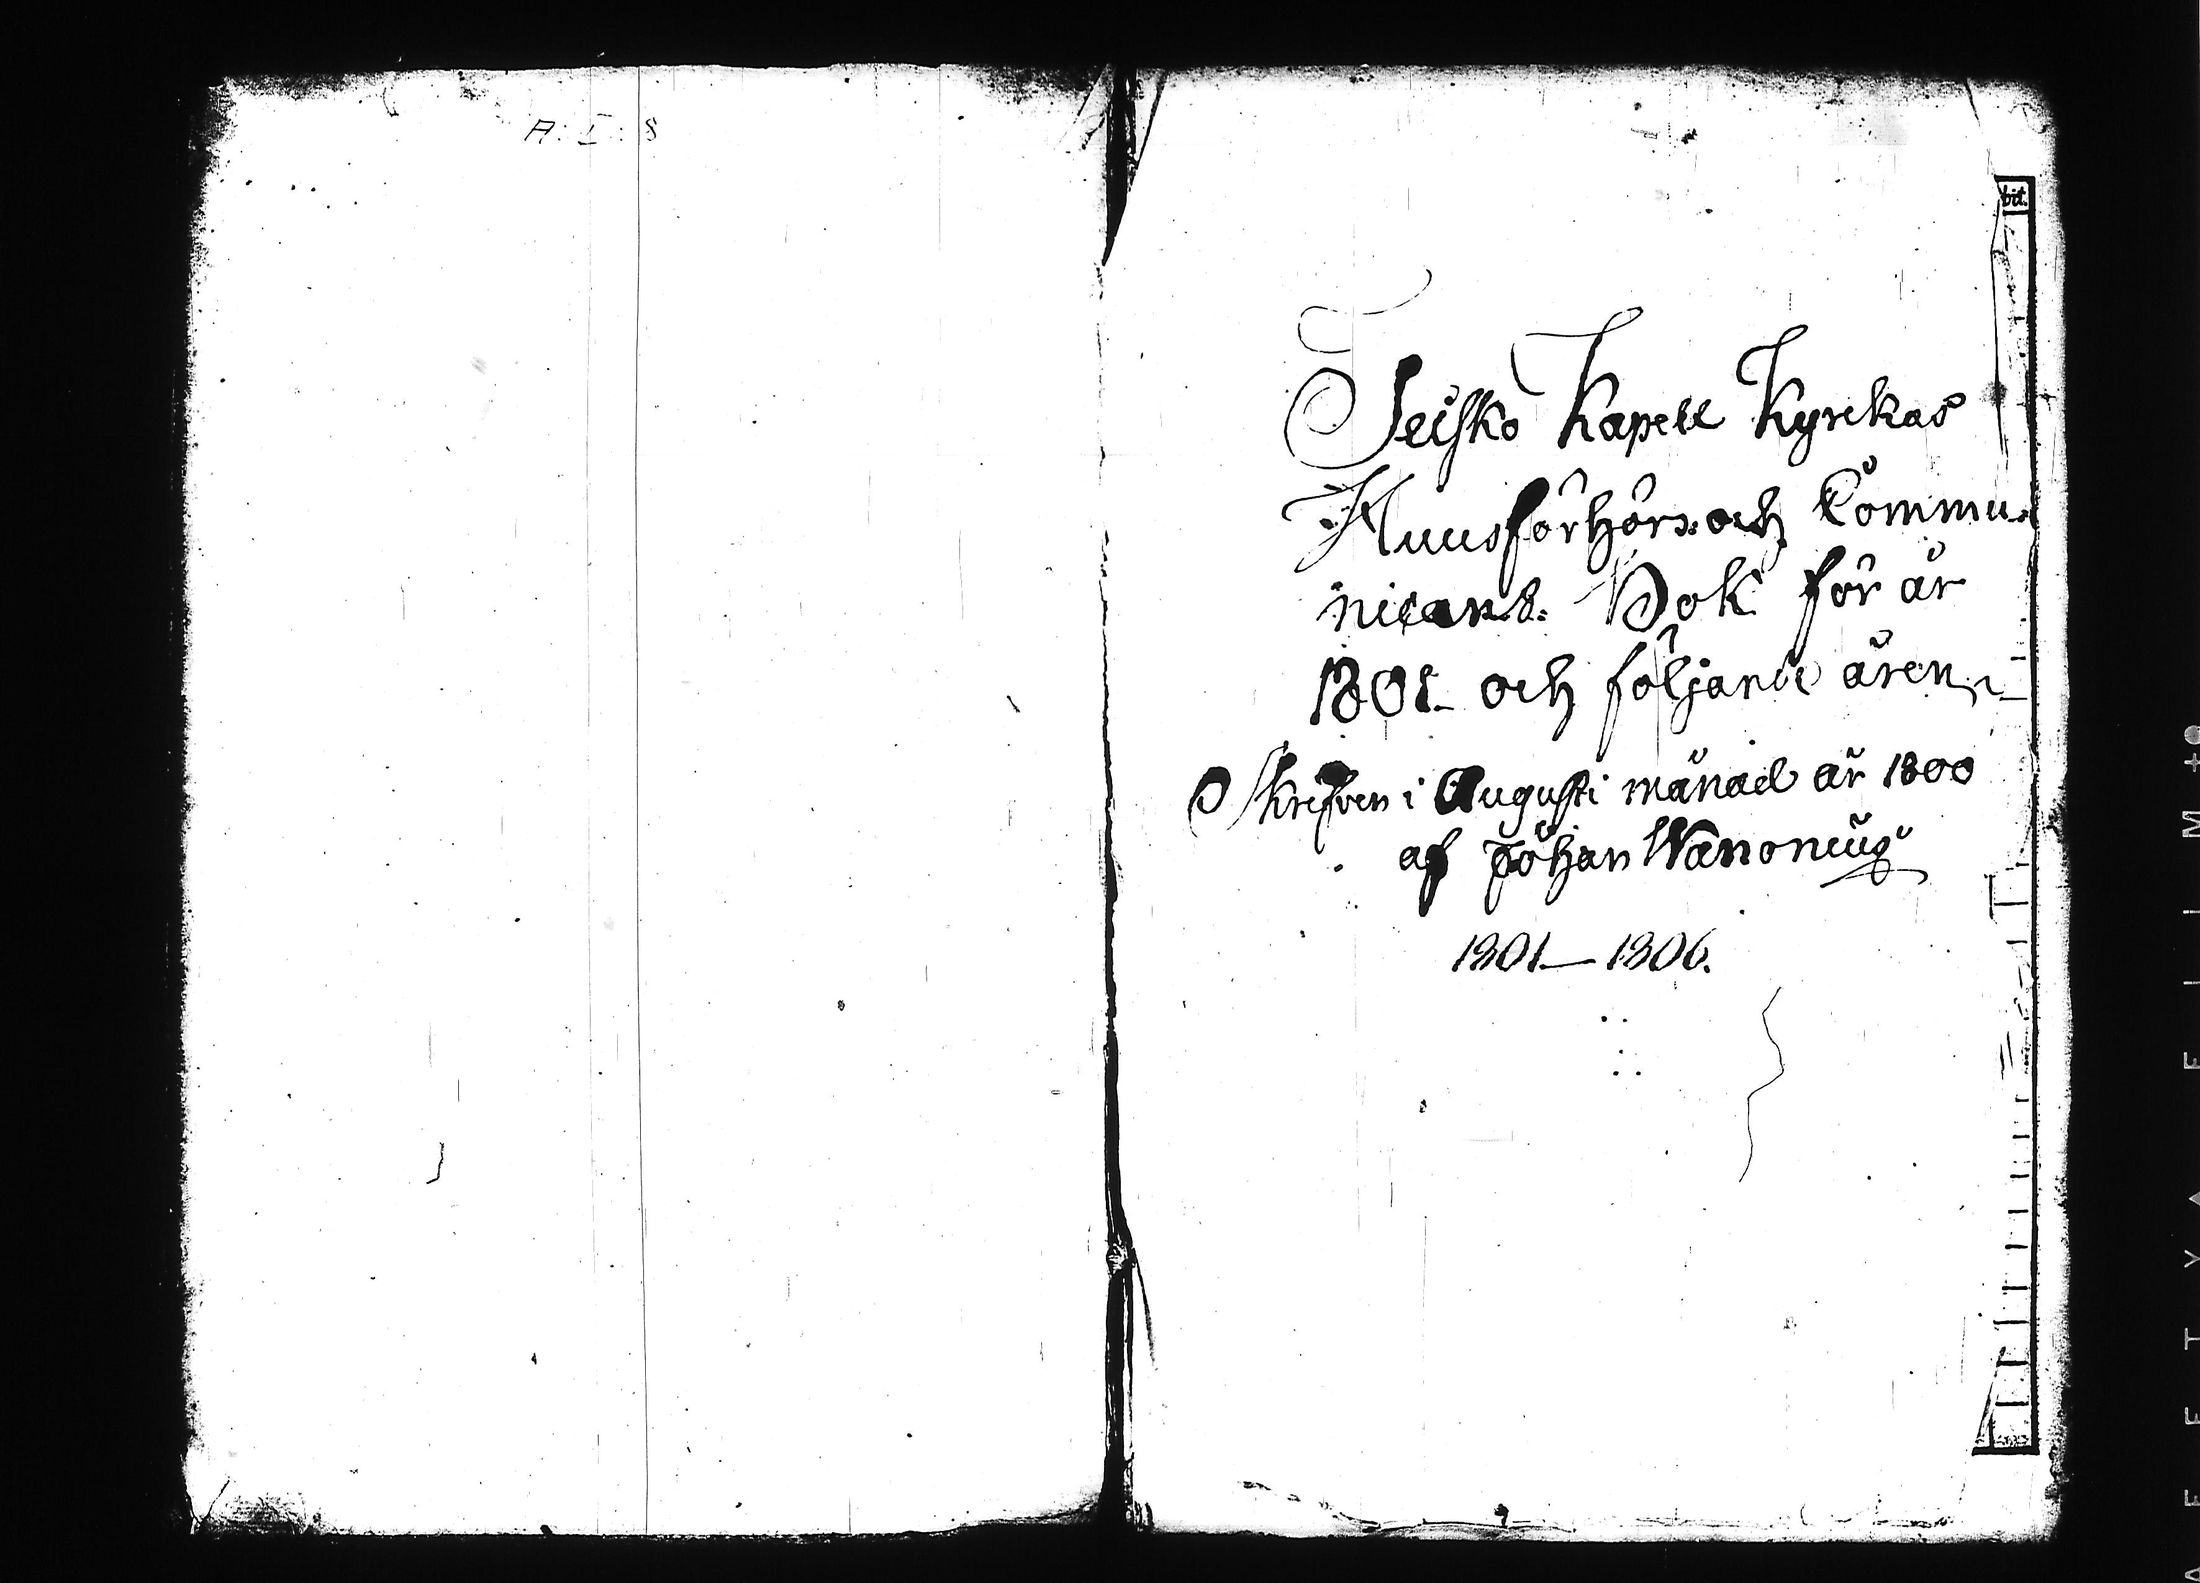 A: I: 8
bit.
Teisko Kapell Kyrckas
Huusförhörs: och Commu:
nicant: Bok för år
1801 och följande åren
Skrifven i Augusti månad år 1800
af Johan Wænonius
1801—1806.